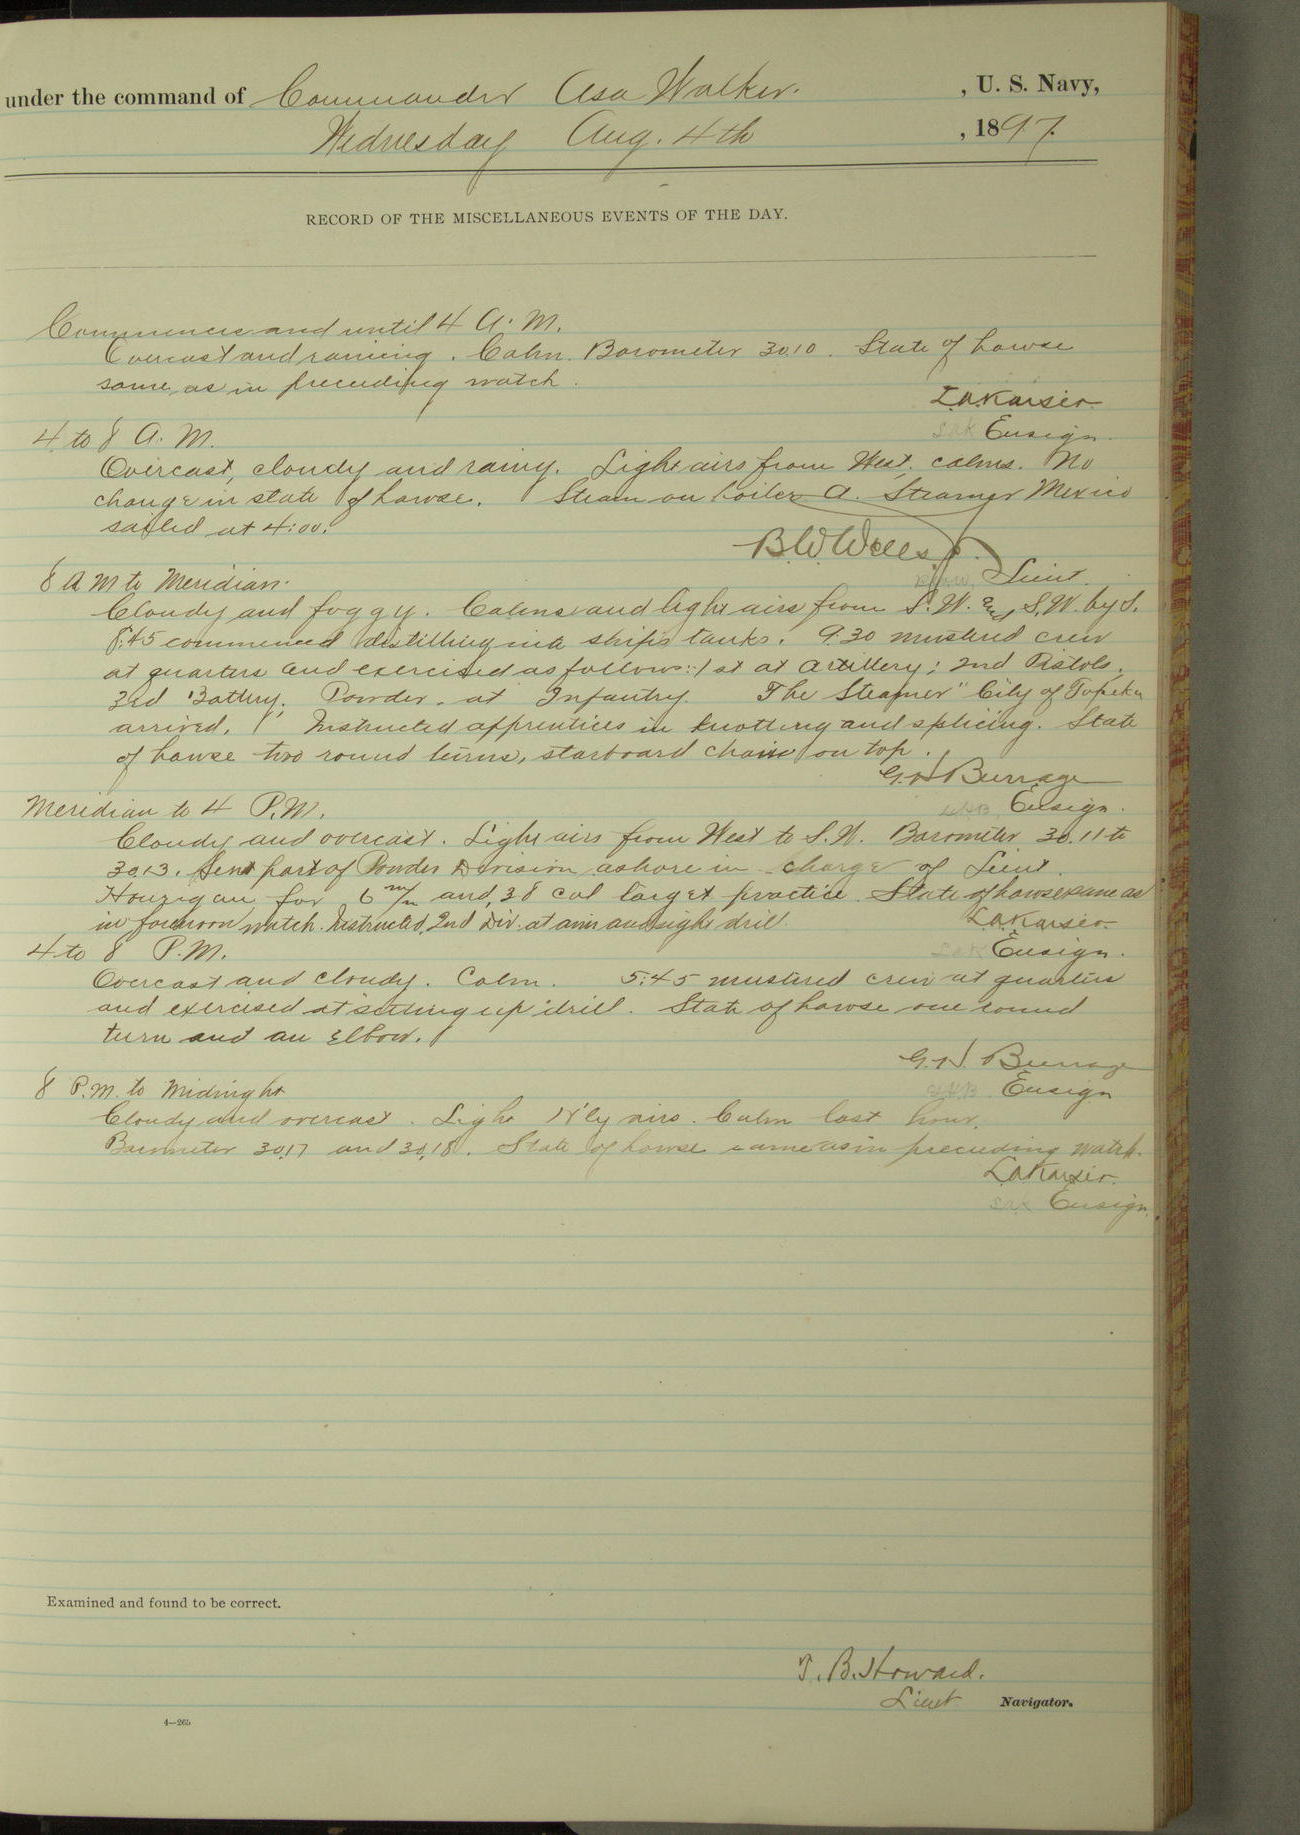 under the command of Commander Asa Walker. , U. S. Navy,
Wednesday Aug. 4th , 1897.
RECORD OF THE MISCELLANEOUS EVENTS OF THE DAY.
Commences and until 4 A. M.
Overcast and raining. Calm. Barometer 30.10. State of hawse
same as in preceding watch.
L.A. Kaiser
Ensign.
4 to 8 A. M.
Overcast, cloudy and rainy. Light airs from West, calms. No
change in state of hawse. Steam on boiler A. Steamer Mexico
sailed at 4:00.
B.W. Wells Jr.
Lieut.
8 A M to Meridian.
Cloudy and foggy. Calms and light airs from S.W. and S.W. by S.
8:45 commenced distilling into ship's tanks. 9.30 mustered crew
at quarters and exercised as follows: 1st at Artillery; 2nd Pistols,
3rd Battery; Powder at Infantry. The Steamer "City of Topeka
arrived. Instructed apprentices in knotting and splicing. State
of hawse two round turns, starboard chain on top.
G.H. Burrage
Ensign.
Meridian to 4 P.M.
Cloudy and overcast. Light airs from West to S.W. Barometer 30.11 to
30.13. Sent part of Powder Division ashore in charge of Lieut.
Hourigan for 6 m/m and .38 cal target practice. State of hawse same as
in forenoon watch. Instructed 2nd Div. at aim and sight drill.
L.A. Kaiser
Ensign.
4 to 8 P.M.
Overcast and cloudy. Calm. 5:45 mustered crew at quarters
and exercised at "setting up" drill. State of hawse one round
turn and an elbow.
G.H. Burrage
Ensign
8 P.M. to Midnight
Cloudy and overcast. Light N'ly airs. Calm last hour.
Barometer 30.17 and 30.18. State of hawse same as in preceding watch.
L.A. Kaiser.
Ensign.
Examined and found to be correct.
T. B. Howard.
Lieut Navigator.
4—265